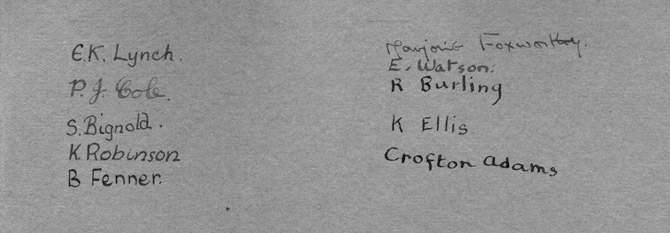 E.K. Lynch.
P. J. Cole.
S. Bignold.
K. Robinson
B Fenner.
Marjorie Foxworthy.
E. Watson.
R Burling
K Ellis
Crofton Adams